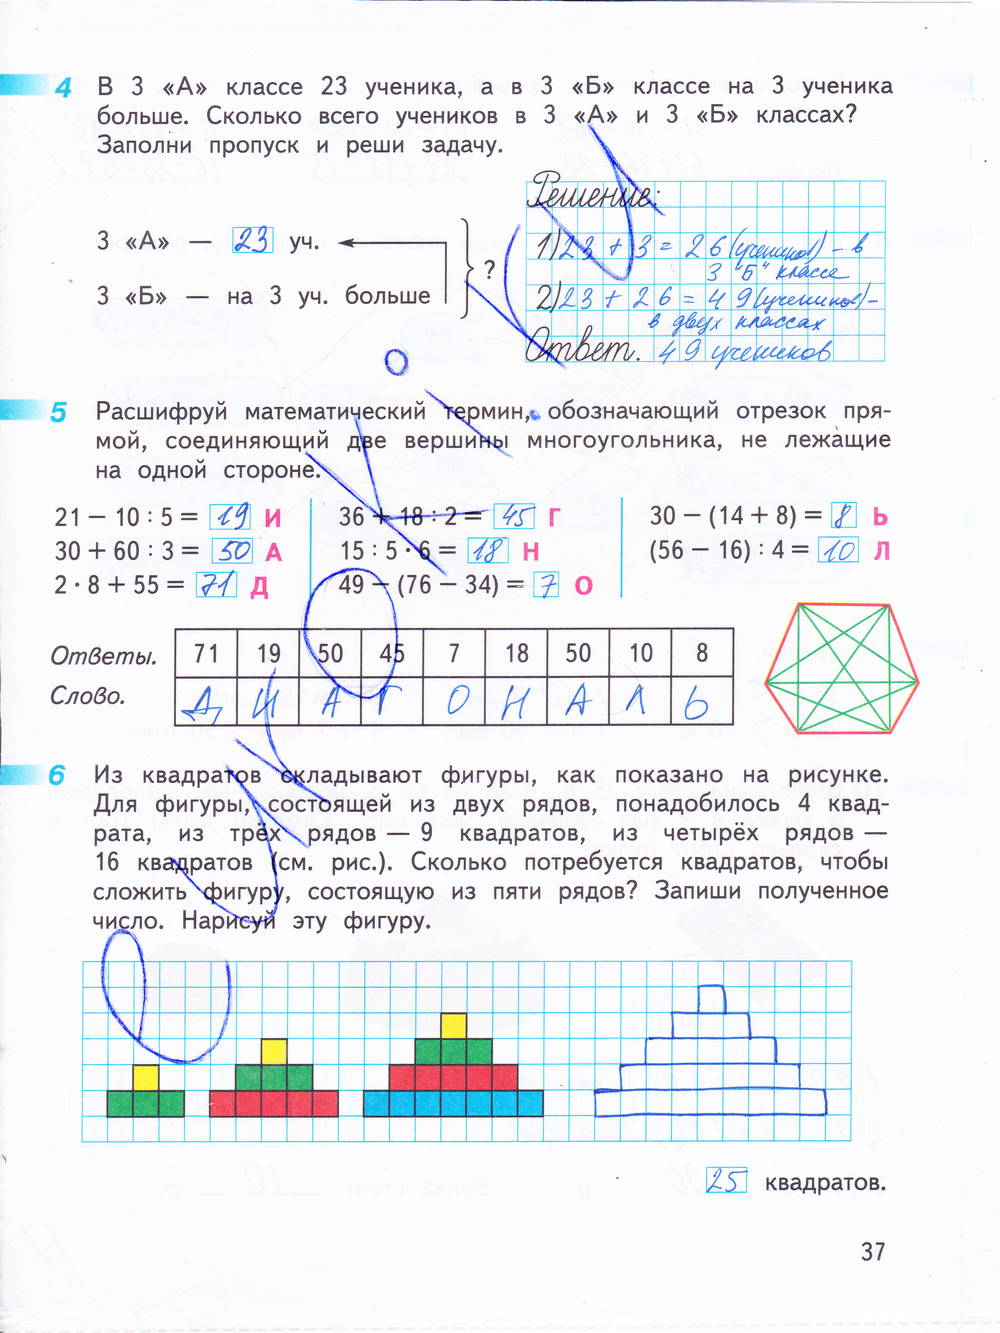 4 В 3 «А» классе 23 ученика, а в 3 «Б» классе на 3 ученика
больше. Сколько всего учеников в 3 «А» и 3 «Б» классах?
Заполни пропуск и реши задачу.
Решение:
3 «А» — 23 уч.
1) 23 + 3 = 26 (учеников) - в
3 "Б" классе
?
3 «Б» — на 3 уч. больше
2) 23 + 26 = 49 (учеников) -
в двух классах
Ответ. 49 учеников
5 Расшифруй математический термин, обозначающий отрезок пря-
мой, соединяющий две вершины многоугольника, не лежащие
на одной стороне.
21 − 10 : 5 = 19 И 36 + 18 : 2 = 45 Г 30 − (14 + 8) = 8 Ь
30 + 60 : 3 = 50 А 15 : 5 · 6 = 18 Н (56 − 16) : 4 = 10 Л
2 · 8 + 55 = 71 Д 49 − (76 − 34) = 7 О
Ответы. 71 19 50 45 7 18 50 10 8
Слово. Д И А Г О Н А Л Ь
6 Из квадратов складывают фигуры, как показано на рисунке.
Для фигуры, состоящей из двух рядов, понадобилось 4 квад-
рата, из трёх рядов — 9 квадратов, из четырёх рядов —
16 квадратов (см. рис.). Сколько потребуется квадратов, чтобы
сложить фигуру, состоящую из пяти рядов? Запиши полученное
число. Нарисуй эту фигуру.
25 квадратов.
37